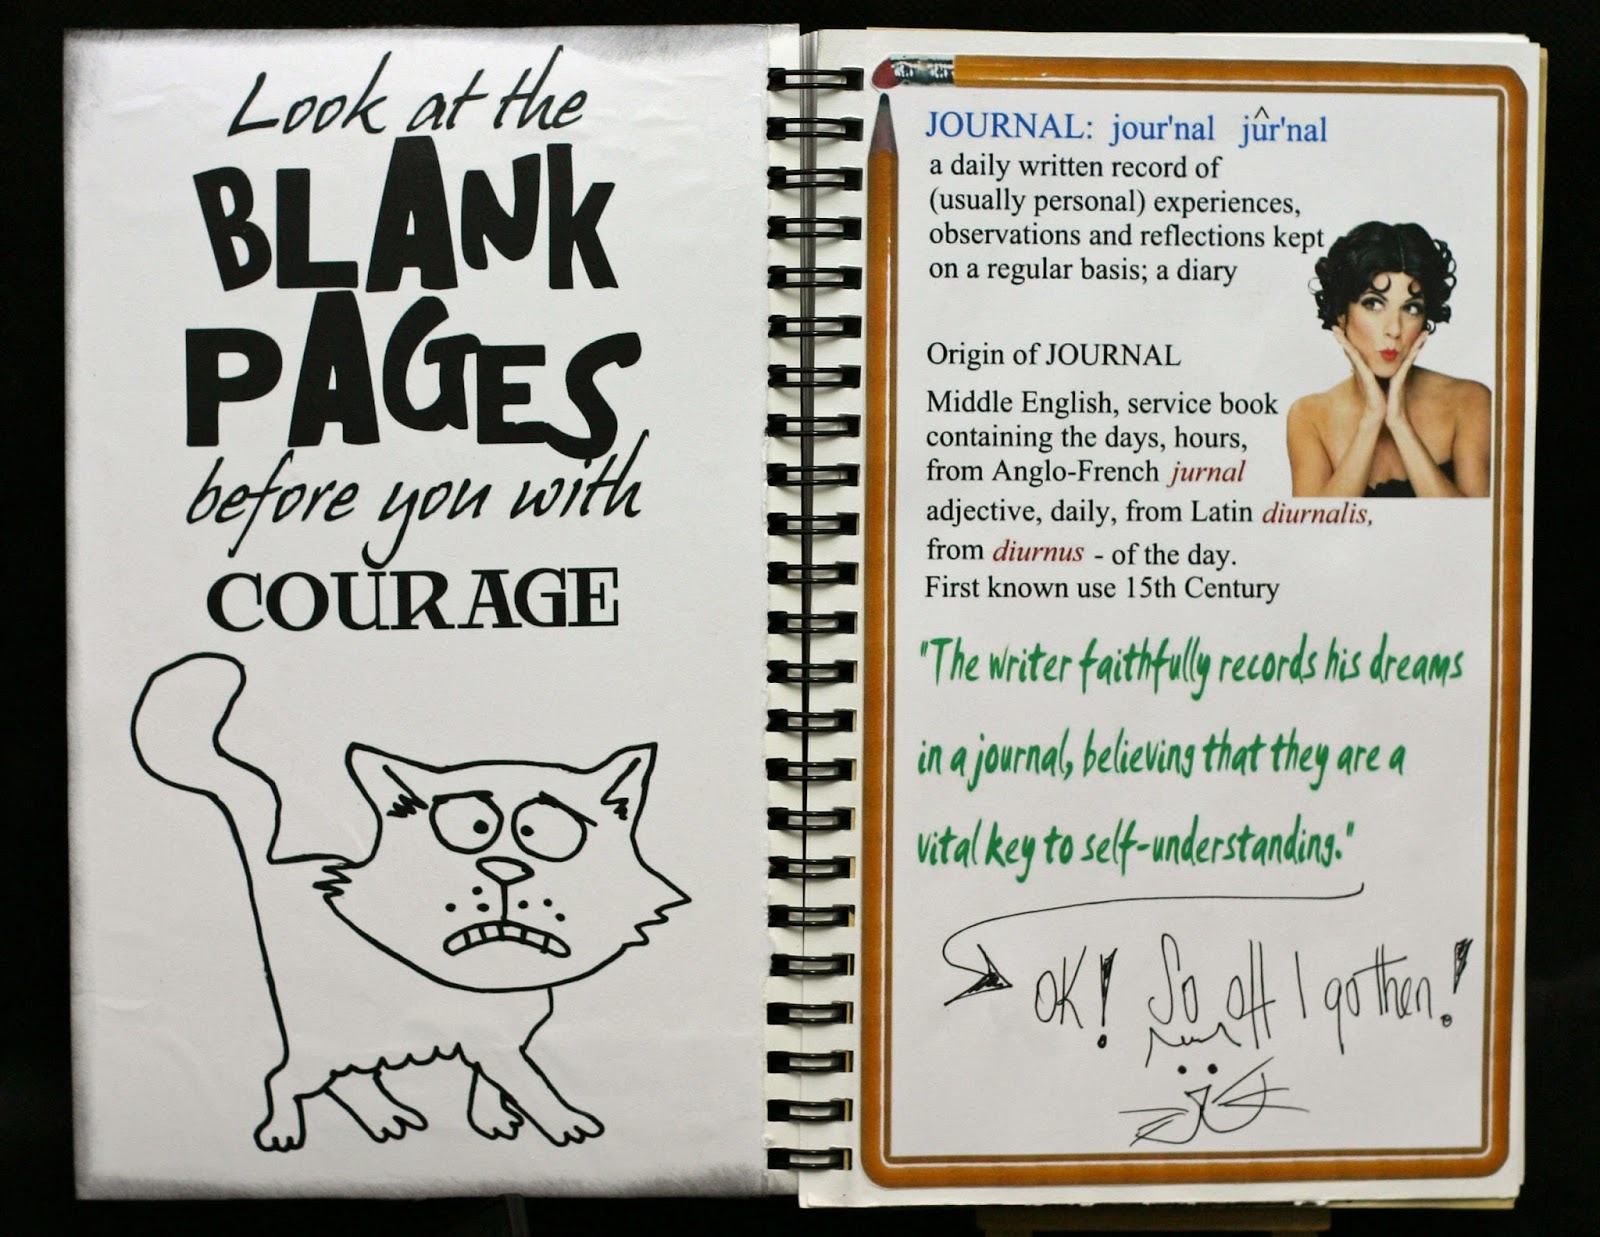 Look at the
BLANK
PAGES
before you with
COURAGE
JOURNAL: jour'nal jûr'nal
a daily written record of
(usually personal) experiences,
observations and reflections kept
on a regular basis; a diary
Origin of JOURNAL
Middle English, service book
containing the days, hours,
from Anglo-French jurnal
adjective, daily, from Latin diurnalis,
from diurnus - of the day.
First known use 15th Century
"The writer faithfully records his dreams
in a journal, believing that they are a
vital key to self-understanding."
OK! So off I go then!